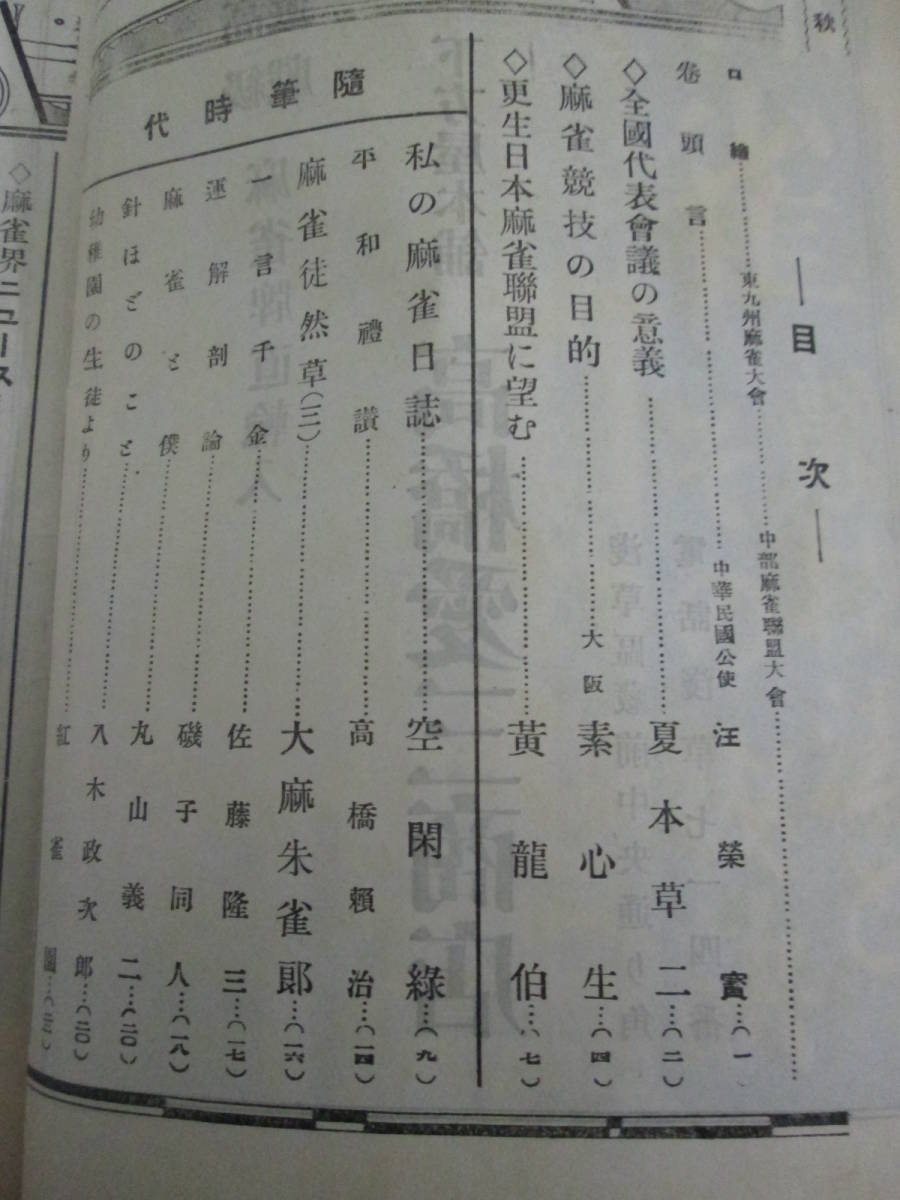 秋
―目次―
口繪……東九州麻雀大會……中部麻雀聯盟大會……
卷頭言……中華民國公使 汪榮寶…(一)
◇全國代表會議の意義……夏本草二…(二)
◇麻雀競技の目的……大阪 素心生…(四)
◇更生日本麻雀聯盟に望む……黃龍伯…(七)
隨筆時代
私の麻雀日誌……空閑綠…(九)
平和禮讃……高橋賴治…(一四)
麻雀徒然草(三)……大麻朱雀郎…(一六)
一言千金……佐藤隆三…(一七)
運解剖論……磯子同人…(一八)
麻雀と僕……丸山義二…(二〇)
針ほどのこと……八木政次郎…(二〇)
幼稚園の生徒より……紅雀園…
◇麻雀界ニユース